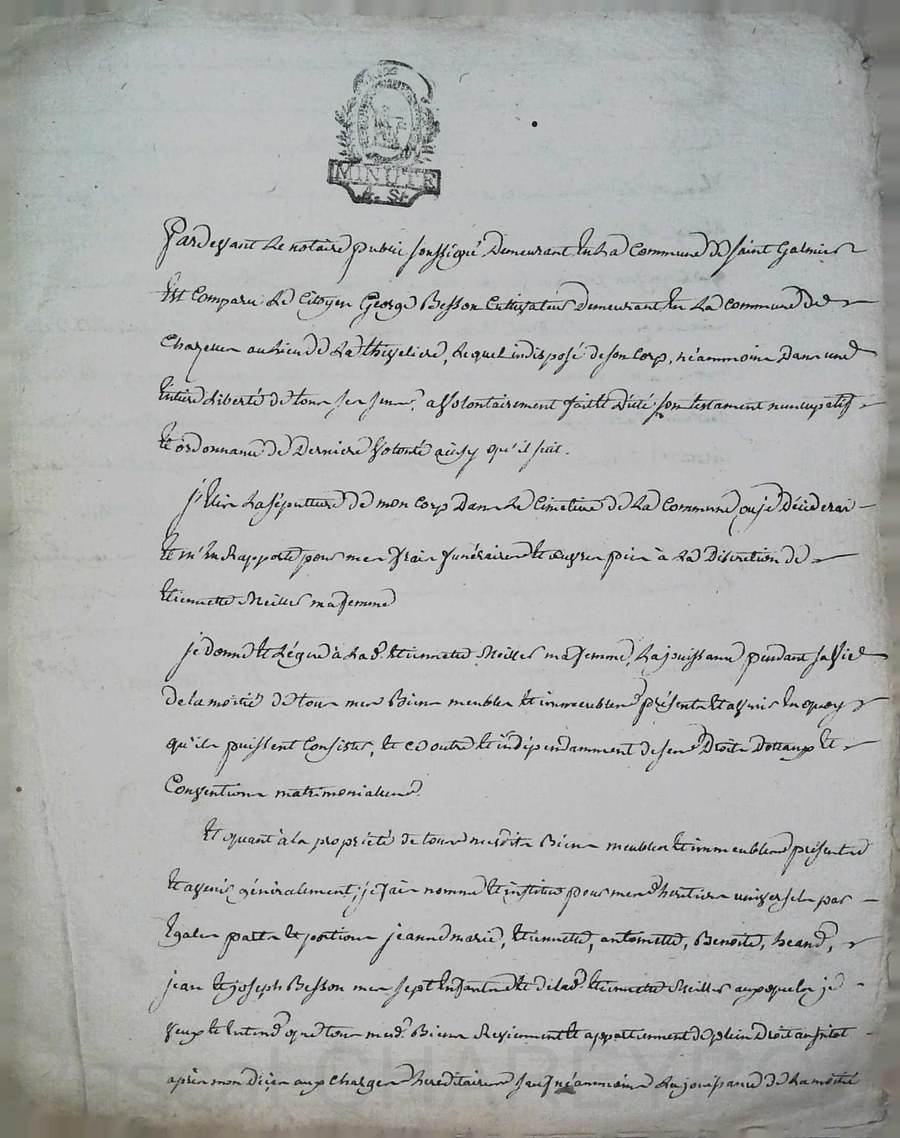 MINUTE
Pardevant Le notaire public soussigné Demeurant En La Commune de Saint Galmier
Est Comparu Le Citoyen George Besson Cultivateur Demeurant En La commune de
Chazelles au Lieu de La Thevelière, Lequel indisposé de son Corp, néammoins Dans une
Entière Liberté de tous ses sens, a Volontairement fait & Dicté son testament nuncupatif
Et ordonnance de Derniere Volonté ainsy qu'il suit.
j'Elis La sépulture de mon Corp Dans Le Cimetiere de La Commune ou je Déciderai
Et m'En Rapporte pour mes frais funéraires Et œuvres pies à La Discretion de
Etiennette ma femme
je donne Et Légue à La de. Etiennette ma femme, La jouissance pendant sa Vie
de la moitié de tous mes Biens meubles Et immeubles présents Et avenir En quoy
qu'ils puissent Consister, Et ce outre Et indépendamment de ses Droits Dotaux Et
Conventions matrimoniales.
Et quant à la propriété de tous mesdits Biens meubles Et immeubles présents
Et avenir généralement, je fais nomme Et institue pour mes héritiers universels par
Egales parts Et portions jeanne marie, Etiennette, antoinette, Benoite,
jean Et joseph Besson mes sept Enfants Et de lad. Etiennette auxquels je
veux Et Entend que tous mesd. Biens Reviennent Et appartiennent de plein Droit aussitot
après mon Décès aux Charges héréditaires sauf néammoins La jouissance de La moitié